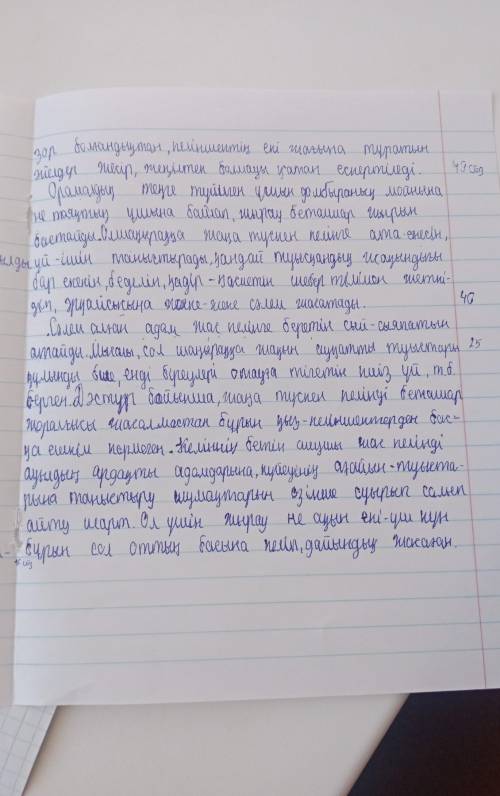 зор болмандықтан, келіншектің екі жағына тұратын
әйелдер жесір, жеңілтек болмауы қатаң ескертіледі. 49 сөз
Орамалдың теңге түйілген ұшын домбыраның мойнына
не таяқтың ұшына байлап, жырау беташар жырын
бастайды. Ол шаңыраққа жаңа түскен келінге ата-енесін,
үй-ішін таныстырады, қандай туысқандық жақындығы
бар екенін, беделін, қадір-қасиетін шебер тілімен жеткі-
зіп, әрқайсысына жеке-жеке сәлем жасатады. 46
Сәлем алған адам жас келінге беретін сый-сияпатын
атайды. Мысалы, сол шаңыраққа жақын ауқатты туыстары 25
құлынды бие, енді біреулері отауға тігетін киіз үй, т.б.
берген. Дәстүр бойынша, жаңа түскен келінді беташар
жоралғысы жасалмастан бұрын қыз-келіншектерден бас-
қа ешкім көрмеген. Келіннің бетін ашушы жас келінді
ауылдың ардақты адамдарына, күйеуінің ағайын-туыста-
рына таныстыру шумақтарын өзінше суырып салып
айту шарт. Ол үшін жырау не ақын екі-үш күн
бұрын сол оттың басына келіп, дайындық жасаған.